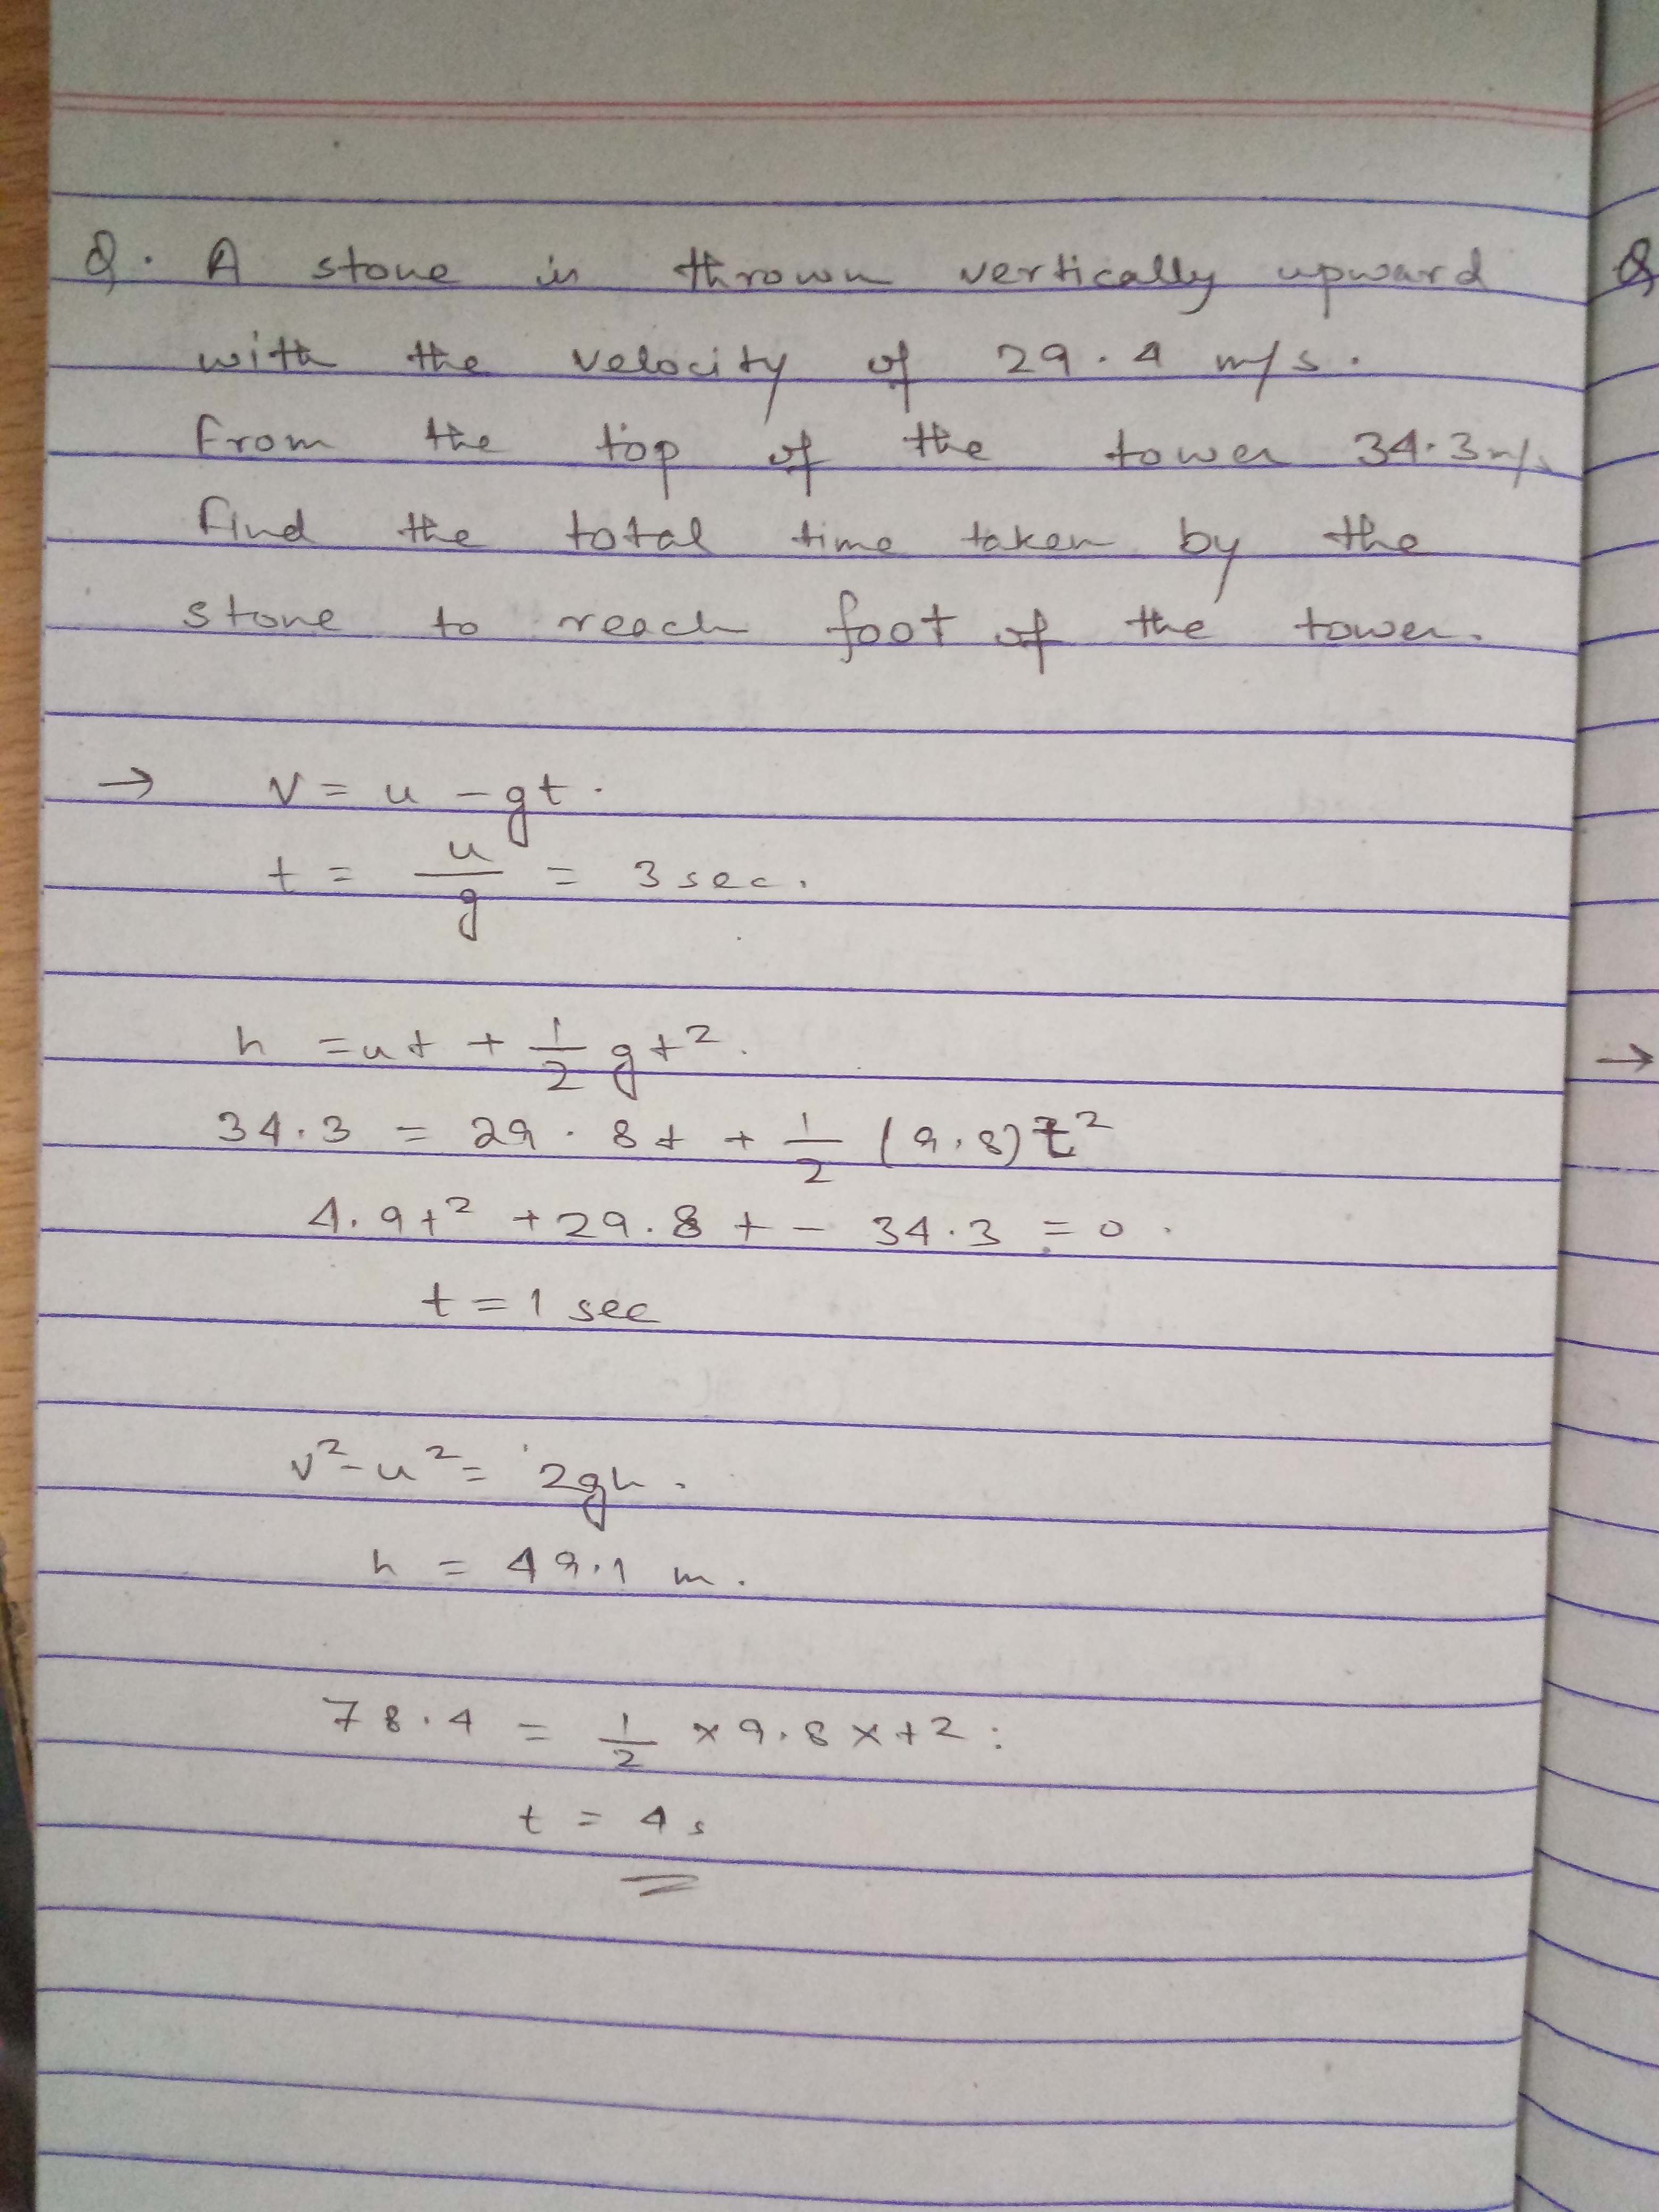 Q. A stone is thrown vertically upward
with the velocity of 29.4 m/s.
From the top of the tower 34.3 m/s
find the total time taken by the
stone to reach foot of the tower.
→ V = u - gt.
t = u/g = 3 sec.
h = ut + 1/2 gt².
34.3 = 29.8t + 1/2 (9.8)t²
4.9t² + 29.8t - 34.3 = 0.
t = 1 sec
v² - u² = 2gh.
h = 49.1 m.
78.4 = 1/2 × 9.8 × t2:
t = 4s
Q
→